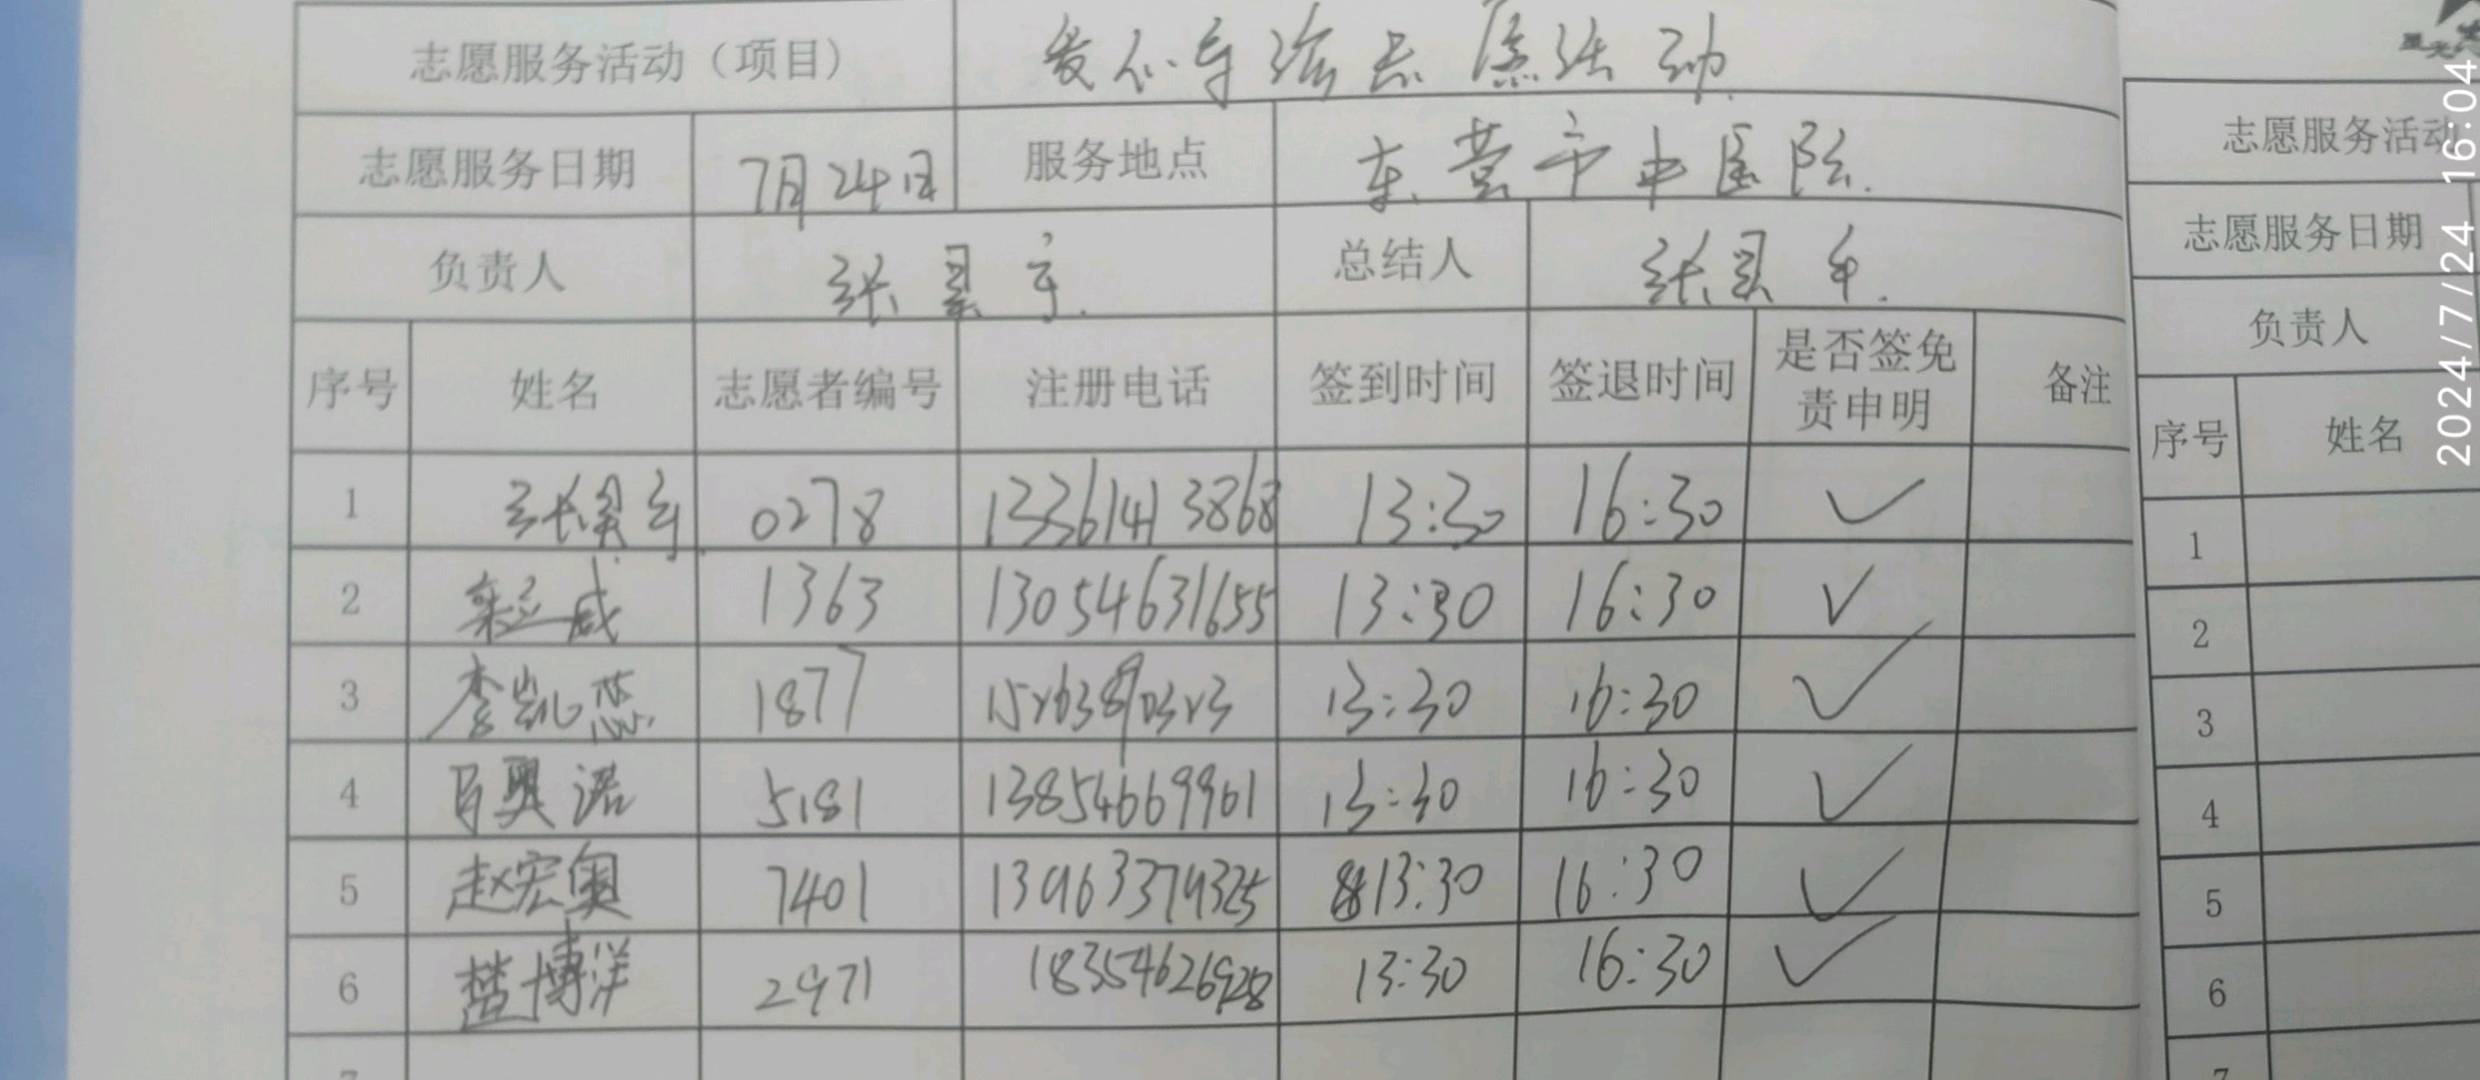 志愿服务活动（项目） 爱心导诊志愿活动
志愿服务日期 7月24日 服务地点 东营市中医院
负责人 张 总结人 张
序号 姓名 志愿者编号 注册电话 签到时间 签退时间 是否签免责申明 备注
1 张 0278 13361413868 13:30 16:30 ✓
2 1363 13054631655 13:30 16:30 ✓
3 李凯蕊 1877 13:30 16:30 ✓
4 奥诺 5181 13854669961 13:30 16:30 ✓
5 赵宏奥 7401 13963379325 13:30 16:30 ✓
6 楚博洋 2971 18354626928 13:30 16:30 ✓
7
志愿服务活动
志愿服务日期
负责人
序号 姓名
1
2
3
4
5
6
7
2024/7/24 16:04